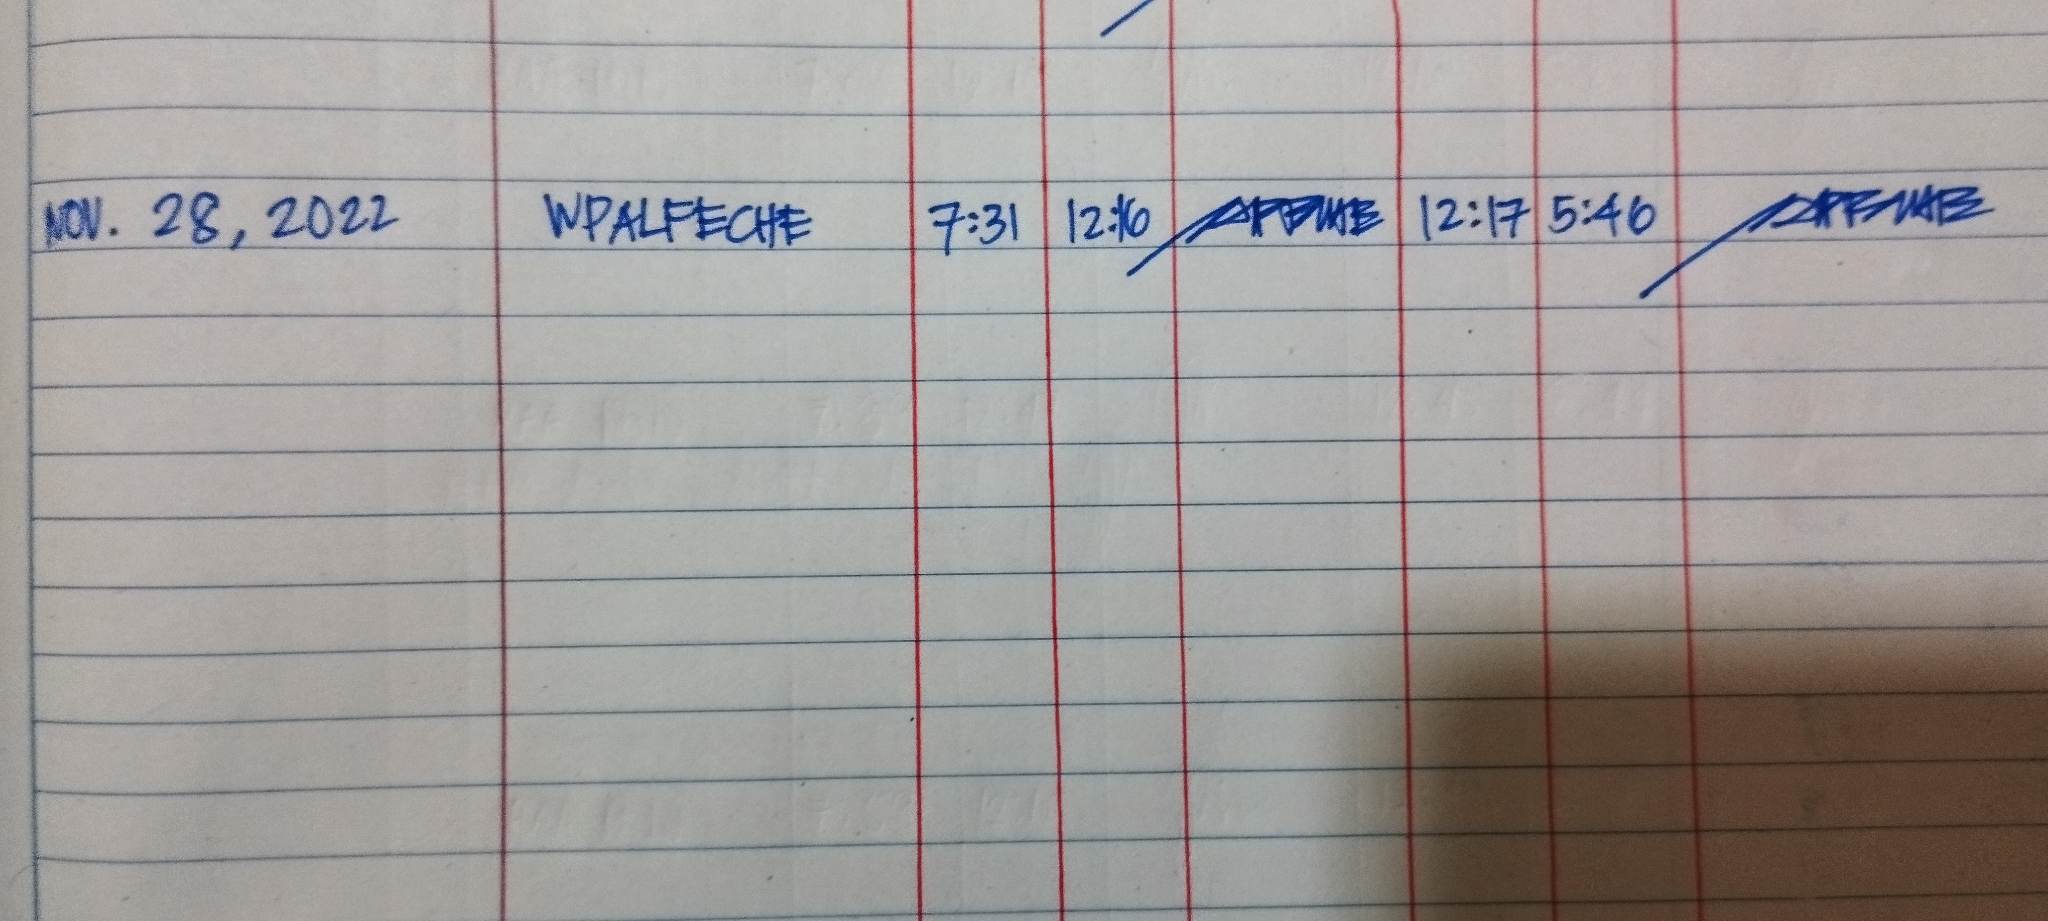 NOV. 28, 2022 WPALFECHE 7:31 12:16 12:17 5:46